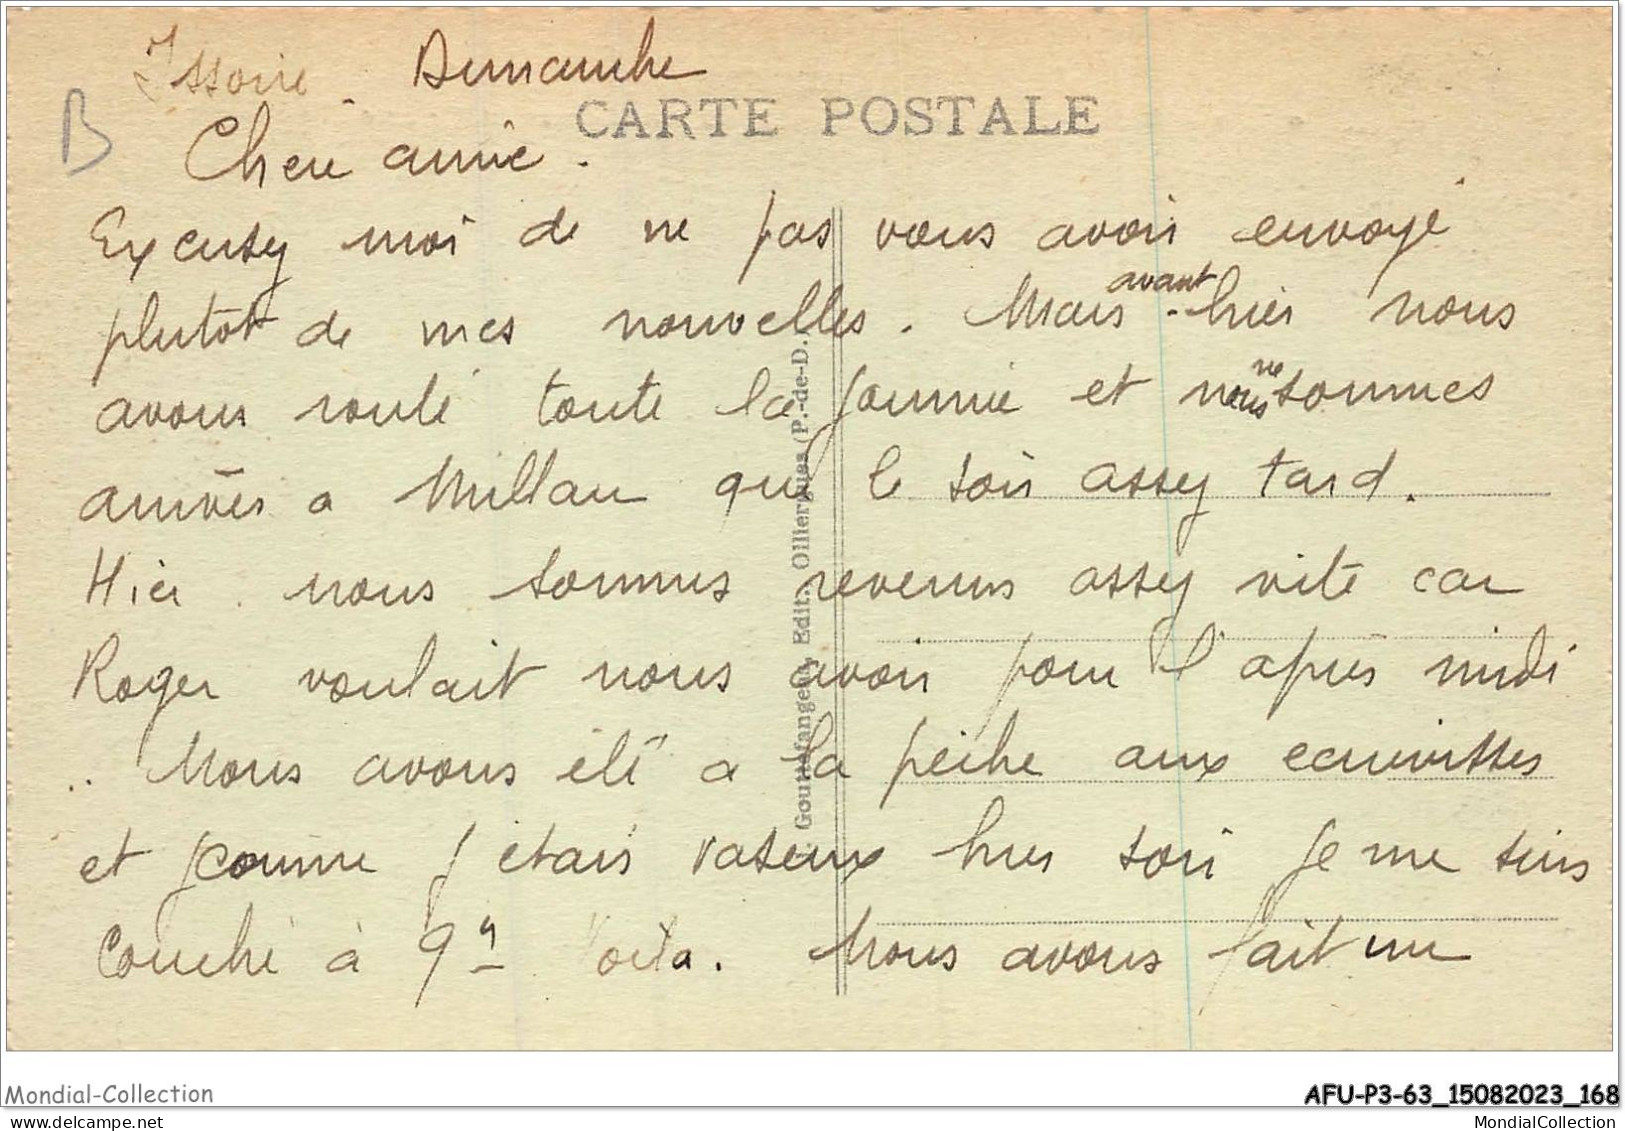 Issoire. Dimanche
B
CARTE POSTALE
Chere amie.
Excusez moi de ne pas vous avoir envoyé
plutot de mes nouvelles. Mais avant-hier nous
avons roulé toute la journée et nous ne sommes
arrivés a Millau que le soir assez tard.
Hier. nous sommes revenus assez vite car
Roger voulait nous avoir pour l'après midi
. Nous avons été a la pêche aux ecrevisses
et comme j'etais vaseux hier soir je me suis
Couché à 9h Voila. Nous avons fait un
Gouttefangeas, Edit., Olliergues (P.-de-D.)
Mondial-Collection
AFU-P3-63_15082023_168
MondialCollection